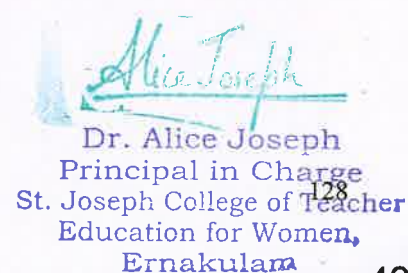 Alice Joseph
Dr. Alice Joseph
Principal in Charge
128
St. Joseph College of Teacher
Education for Women,
Ernakulam